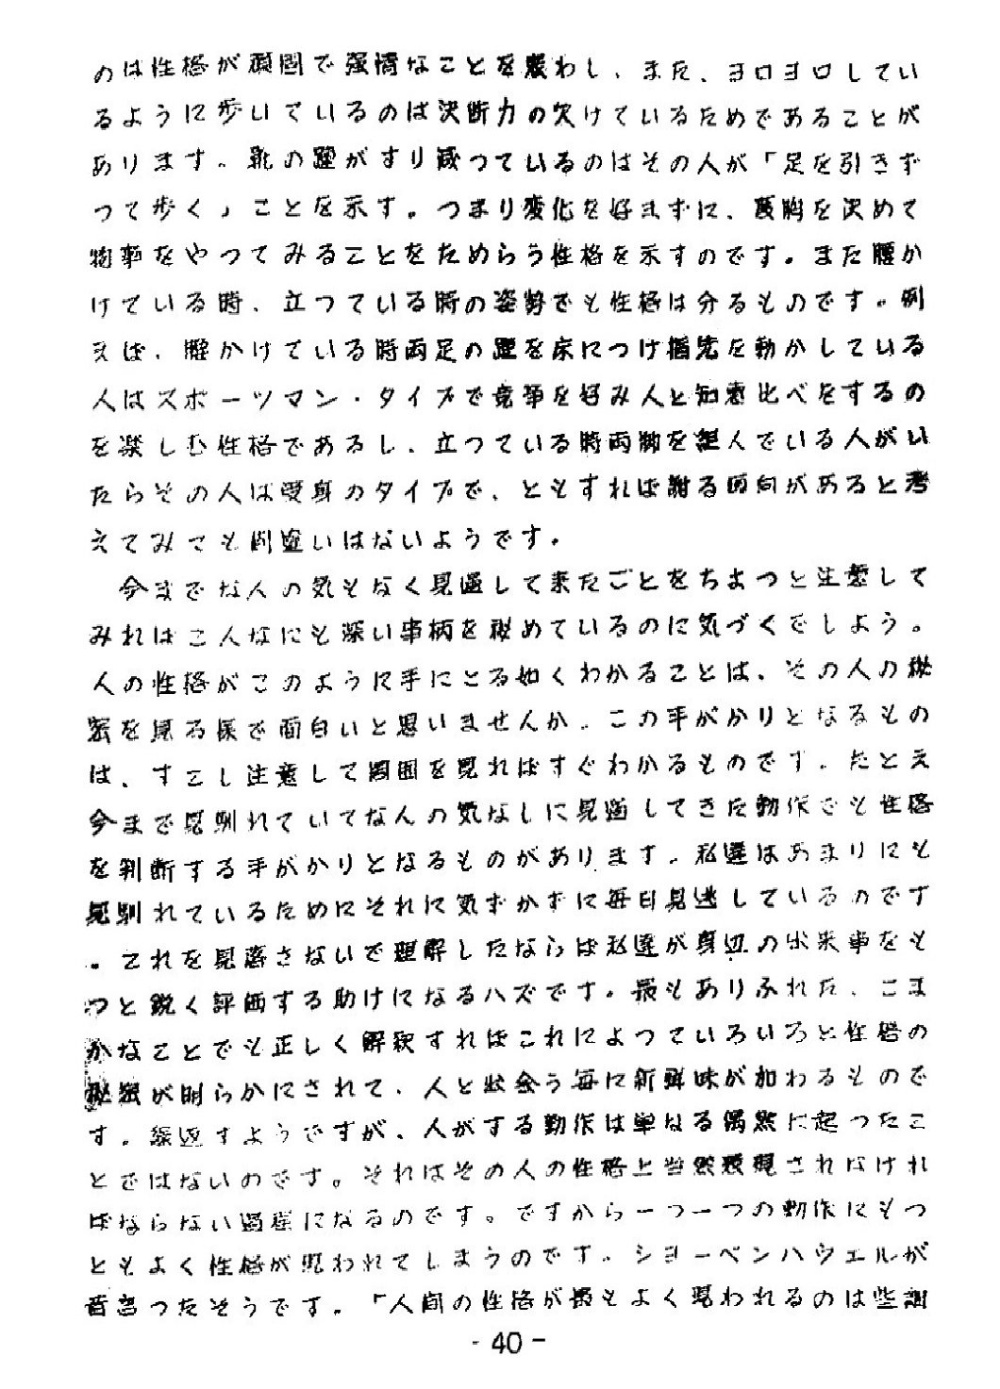 のは性格が頑固で強情なことを表わし、また、ヨロヨロしてい
るように歩いているのは決断力の欠けているためであることが
あります。靴の踵がすり減つているのはその人が「足を引きず
つて歩く」ことを示す。つまり変化を好まずに、度胸を決めて
物事をやつてみることをためらう性格を示すのです。また腰か
けている時、立つている時の姿勢でも性格は分るものです。例
えば、腰かけている時両足の踵を床につけ指先を動かしている
人はスポーツマン・タイプで競争を好み人と知恵比べをするの
を楽しむ性格であるし、立つている時両脚を組んでいる人がい
たらその人は受身のタイプで、ともすれば謝る傾向があると考
えてみても間違いはないようです。
今までなん の気もなく見過して来たごとをちよつと注意して
みればこんなにも深い事柄を秘めているのに気づくでしよう。
人の性格がこのように手にとる如くわかることは、その人の秘
密を見る様で面白いと思いませんか。この手がかりとなるもの
は、すこし注意して周囲を見ればすぐわかるものです。たとえ
今まで見馴れていてなんの気なしに見過してきた動作でも性格
を判断する手がかりとなるものがあります。私達はあまりにも
見馴れているためにそれに気ずかずに毎日見逃しているのです
。これを見落さないで理解したならば私達が身辺の出来事をも
つと鋭く評価する助けになるハズです。最もありふれた、こま
かなことでも正しく解釈すればこれによつていろいろと性格の
秘密が明らかにされて、人と出会う毎に新鮮味が加わるもので
す。繰返すようですが、人がする動作は単なる偶然に起つたこ
とではないのです。それはその人の性格上当然表現されなけれ
ばならない過程になるのです。ですから一つ一つの動作にもつ
ともよく性格が現われてしまうのです。シヨーペンハウエルが
昔言つたそうです。「人間の性格が最もよく現われるのは些細
- 40 -